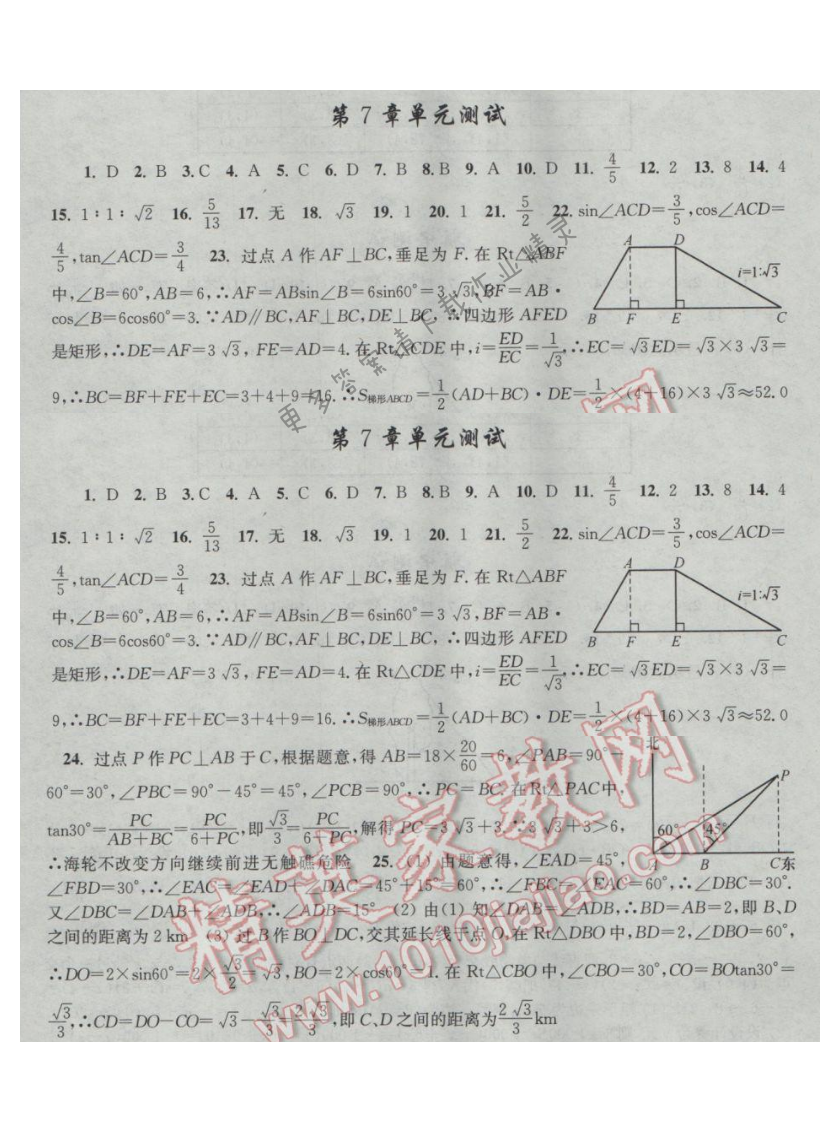 第 7 章单元测试
1. D 2. B 3. C 4. A 5. C 6. D 7. B 8. B 9. A 10. D 11. 4/5 12. 2 13. 8 14. 4
15. 1∶1∶√2 16. 5/13 17. 无 18. √3 19. 1 20. 1 21. 5/2 22. sin∠ACD=3/5,cos∠ACD=
4/5,tan∠ACD=3/4 23. 过点 A 作 AF⊥BC,垂足为 F.在 Rt△ABF
中,∠B=60°,AB=6,∴AF=ABsin∠B=6sin60°=3√3,BF=AB·
cos∠B=6cos60°=3.∵AD∥BC,AF⊥BC,DE⊥BC, ∴四边形 AFED
是矩形,∴DE=AF=3√3, FE=AD=4.在 Rt△CDE 中,i=ED/EC=1/√3,∴EC=√3ED=√3×3√3=
9,∴BC=BF+FE+EC=3+4+9=16.∴S梯形ABCD=1/2(AD+BC)·DE=1/2×(4+16)×3√3≈52.0
A D
i=1:√3
B F E C
更多答案请下载作业精灵
第 7 章单元测试
1. D 2. B 3. C 4. A 5. C 6. D 7. B 8. B 9. A 10. D 11. 4/5 12. 2 13. 8 14. 4
15. 1∶1∶√2 16. 5/13 17. 无 18. √3 19. 1 20. 1 21. 5/2 22. sin∠ACD=3/5,cos∠ACD=
4/5,tan∠ACD=3/4 23. 过点 A 作 AF⊥BC,垂足为 F.在 Rt△ABF
中,∠B=60°,AB=6,∴AF=ABsin∠B=6sin60°=3√3,BF=AB·
cos∠B=6cos60°=3.∵AD∥BC,AF⊥BC,DE⊥BC, ∴四边形 AFED
是矩形,∴DE=AF=3√3, FE=AD=4.在 Rt△CDE 中,i=ED/EC=1/√3,∴EC=√3ED=√3×3√3=
9,∴BC=BF+FE+EC=3+4+9=16.∴S梯形ABCD=1/2(AD+BC)·DE=1/2×(4+16)×3√3≈52.0
A D
i=1:√3
B F E C
24. 过点 P 作 PC⊥AB 于 C,根据题意,得 AB=18×20/60=6,∠PAB=90°-
60°=30°,∠PBC=90°-45°=45°,∠PCB=90°,∴PC=BC.在 Rt△PAC中,
tan30°=PC/(AB+BC)=PC/(6+PC),即√3/3=PC/(6+PC),解得 PC=3√3+3.∵3√3+3>6,
∴海轮不改变方向继续前进无触礁危险 25. (1) 由题意得,∠EAD=45°,
∠FBD=30°,∴∠EAC=∠EAD+∠DAC=45°+15°=60°,∴∠FBC=∠EAC=60°,∴∠DBC=30°.
又∠DBC=∠DAB+∠ADB,∴∠ADB=15° (2) 由(1) 知∠DAB=∠ADB,∴BD=AB=2,即 B、D
之间的距离为 2 km (3) 过 B 作 BO⊥DC,交其延长线于点 O,在 Rt△DBO 中,BD=2,∠DBO=60°,
∴DO=2×sin60°=2×√3/2=√3,BO=2×cos60°=1.在 Rt△CBO 中,∠CBO=30°,CO=BOtan30°=
√3/3,∴CD=DO-CO=√3-√3/3=2√3/3,即 C、D 之间的距离为2√3/3km
北
P
60° 45°
A B C 东
精英家教网
www.1010jiajiao.com